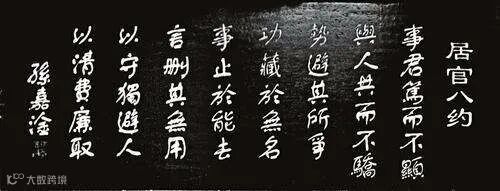 居官八约
事君篤而不顯
與人共而不驕
勢避其所爭
功藏於無名
事止於能去
言删其無用
以守獨避人
以清費廉取
孫嘉淦
大数跨境